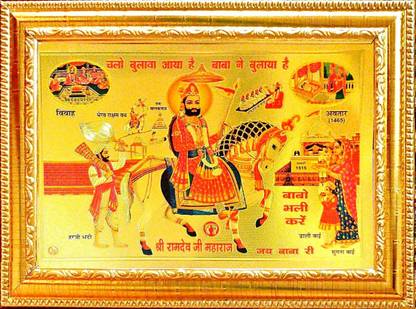 चलो बुलावा आया है बाबा ने बुलाया है
विवाह
भैरव राक्षस वध
अवतार
(1465)
समाधी
1515
बाबो
भली
करें
हरजी भाटी
डाली बाई
सुगना बाई
श्री रामदेव जी महाराज
जय बाबा री